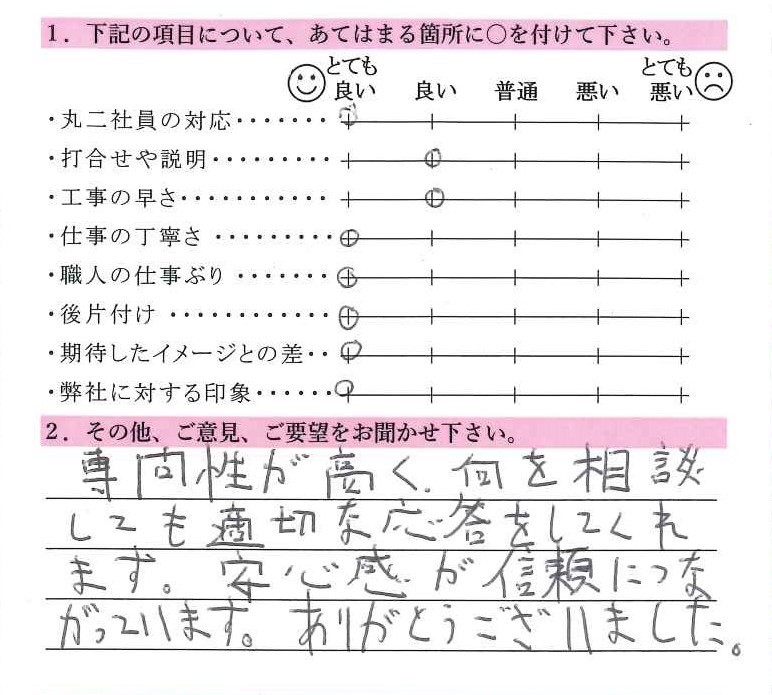 1．下記の項目について、あてはまる箇所に○を付けて下さい。
とても良い 良い 普通 悪い とても悪い
・丸二社員の対応・・・・・・・
・打合せや説明・・・・・・・・・
・工事の早さ・・・・・・・・・・・
・仕事の丁寧さ・・・・・・・・・
・職人の仕事ぶり・・・・・・・
・後片付け・・・・・・・・・・・・
・期待したイメージとの差・・
・弊社に対する印象・・・・・・
2．その他、ご意見、ご要望をお聞かせ下さい。
専門性が高く、何を相談
しても適切な応答をしてくれ
ます。安心感が信頼につな
がっています。ありがとうございました。